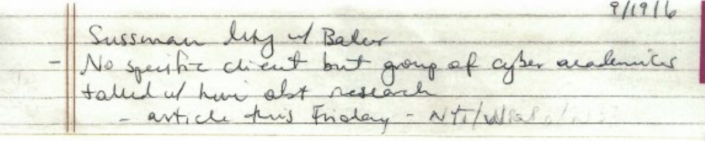 9/19/16
Sussman Mtg w/ Baker
- No specific client but group of cyber academics
talked w/ him abt research
- article this Friday - NYT/WSJ/